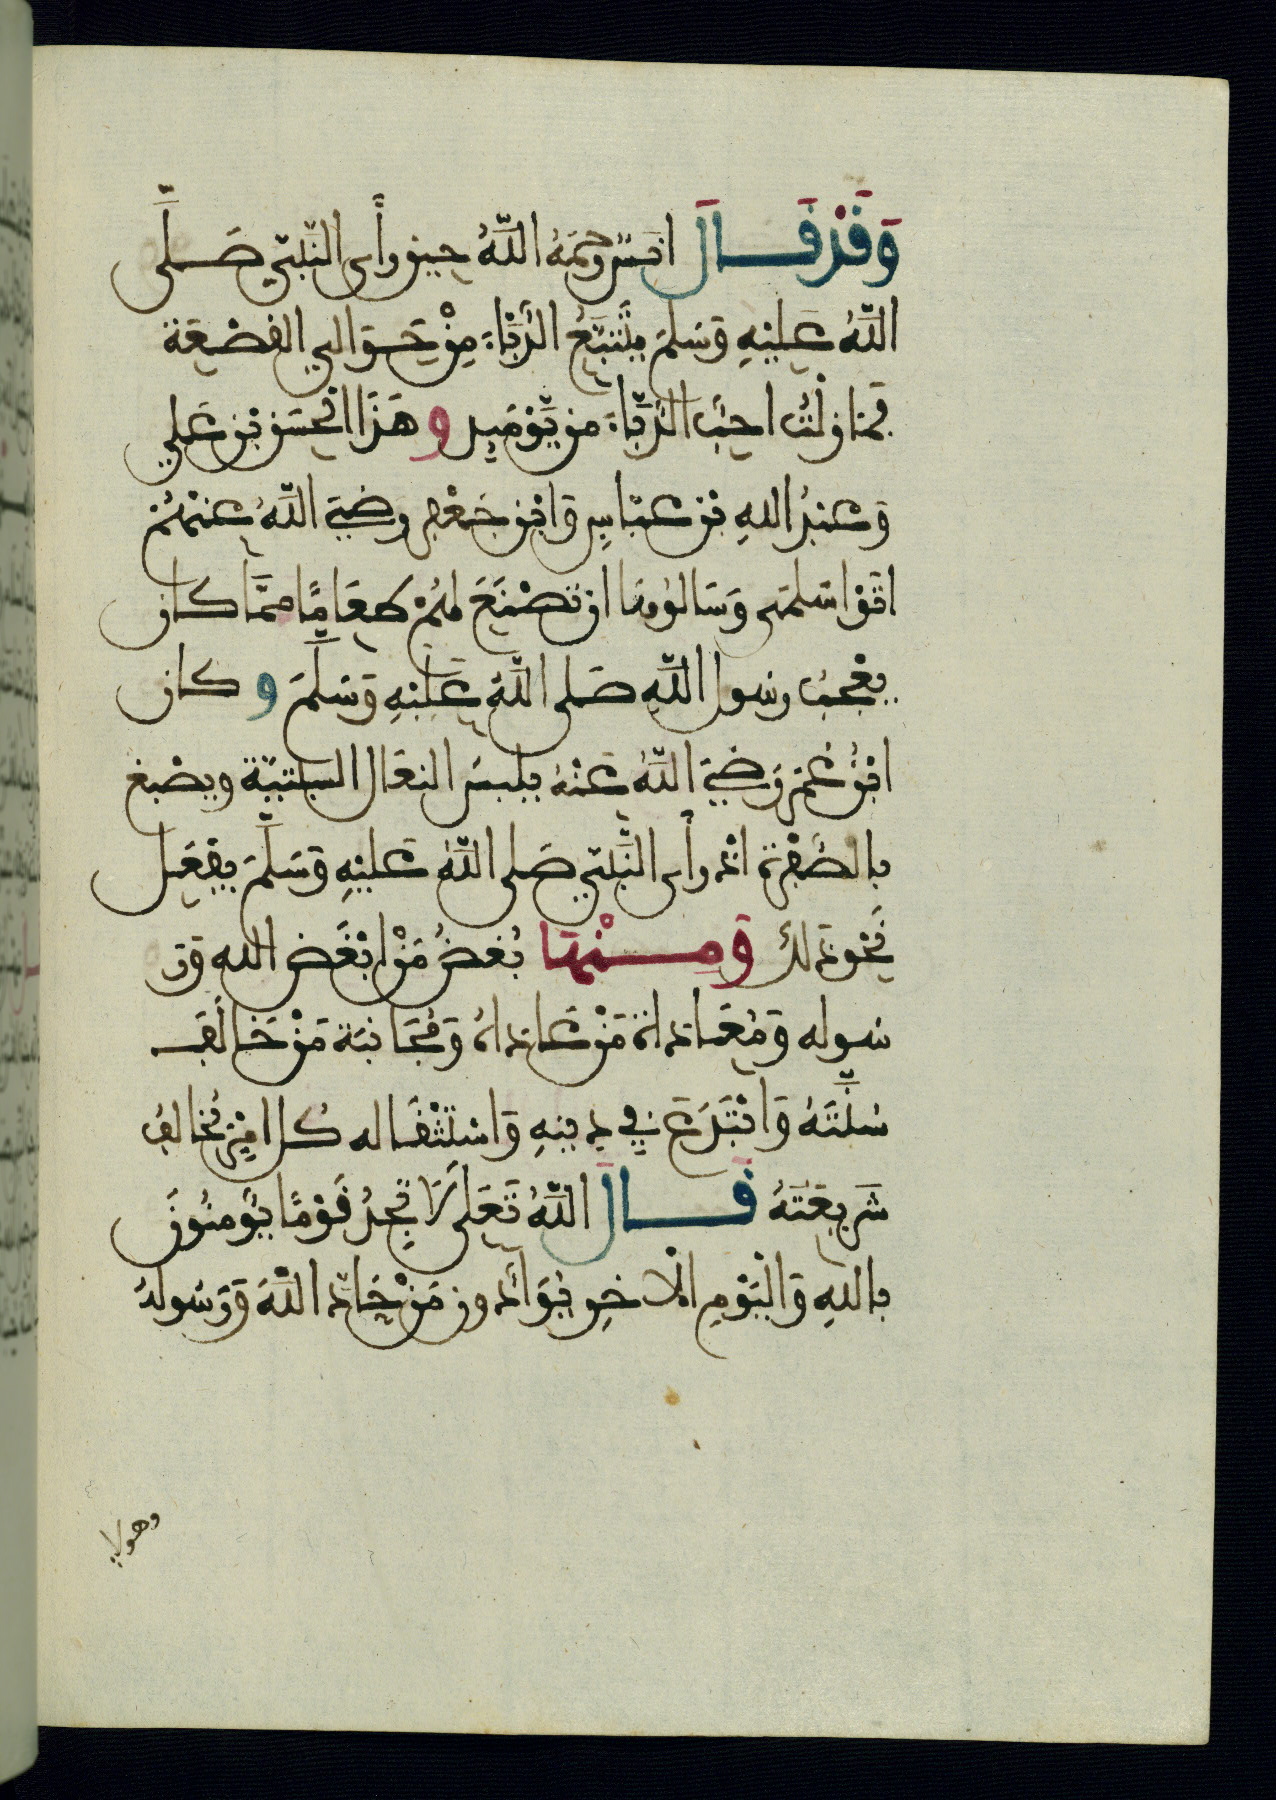 وَقَدْ قَالَ انس رحِمَهُ اللَّهُ حين رأى النَّبيّ صَلَّى
اللَّهُ عَلَيْهِ وَسَلمَ يتَتَبَّعُ الدُّبَّاءَ مِنْ حَوَالي القصْعَة
فَمَا زلْتُ احِبُّ الدُّبَّاءَ من يَّوْمَيِذ وهَذَا الحَسَنُ بْن عَلي
وَعبْدُ اللهِ بْن عبّاسٍ وَابْن جَعْفر رضيَ اللَّهُ عنْهُمْ
اتَوْا سَلمَى وَسَالوُهَا ان تصْنَعَ لهُمْ طعَامًا ممَّا كان
يعْجبُ رسول اللَّهِ صَلى اللَّهُ عَلَيْهِ وَسَلَّمَ وكان
ابْنُ عُمَر رَضيَ اللَّهُ عَنْهُ يلبسُ النعَال السبْتيَّة ويصْبغ
بالصُّفْرَة اذ رأى النَّبيّ صَلى اللَّهُ عَلَيْهِ وَسَلَّمَ يفعَل
نَحْو ذلكَ وَمنْهَا بُغضُ مَنْ ابْغَض الله وَرَ
سوله وَمُعَاداة مَنْ عَاداهُ وَمُجَانبَة مَنْ خَالَفَ
سُنَّتَهُ وَابْتَدَعَ في دينهِ وَاسْتثْقَاله كُل امْرٍ يُخالفُ
شَريعَتَهُ قَالَ اللَّهُ تَعَلى لَا تَجِدُ قَوْمًا يُؤمنُونَ
باللهِ وَالْيَوْمِ الْاخِرِ يُوَآدُّون مَنْ حَادَّ اللَّهَ وَرَسُولهُ
وهولا